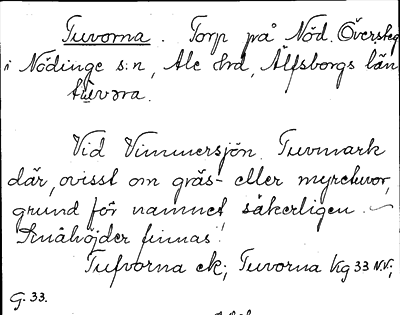 Tuvorna. Torp på Nöd. Översteg
i Nödinge s:n, Ale hrd, Älfsborgs län
tùvəra.
Vid Vimmersjön. Tuvmark
där, ovisst om gräs- eller myrtuvor,
grund för namnet säkerligen.
Småhöjder finnas!
Tufvorna ek; Tuvorna Kg 33 N.V.;
G. 33.